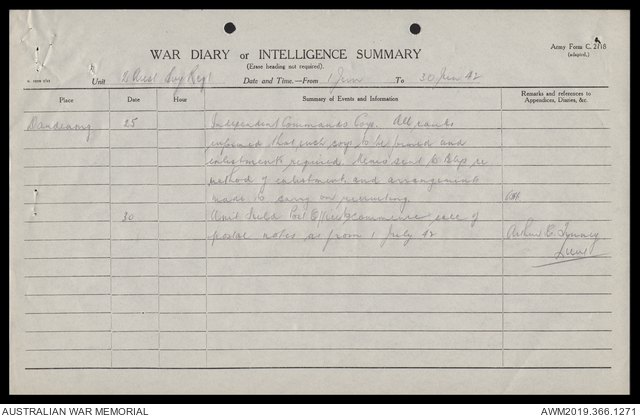 Army Form C. 2118
(adapted.)
WAR DIARY or INTELLIGENCE SUMMARY
(Erase heading not required).
Unit 2 Regt
Date and Time.—From 1 Jun To 30 Jun 42
Place Day Hour Summary of Events and Information Remarks and references to Appendices, Diaries, &c.
Dandenong 25 Independent Commando Coys. All ranks
informed that such coys to be formed and
enlistments required. Memo sent to re
method of enlistment and arrangements
made to carry on recruiting. App
30 Unit Field Post Office commence sale of
postal notes as from 1 July 42
Lieut
AUSTRALIAN WAR MEMORIAL
AWM2019.366.1271